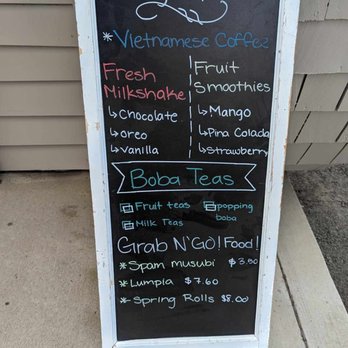 * Vietnamese Coffee
Fresh Milkshake
↳ Chocolate
↳ oreo
↳ Vanilla
Fruit Smoothies
↳ Mango
↳ Pina Colada
↳ Strawberry
Boba Teas
Fruit teas
popping boba
Milk Teas
Grab N'GO! Food!
* Spam musubi $3.50
* Lumpia $7.60
* Spring Rolls $8.00